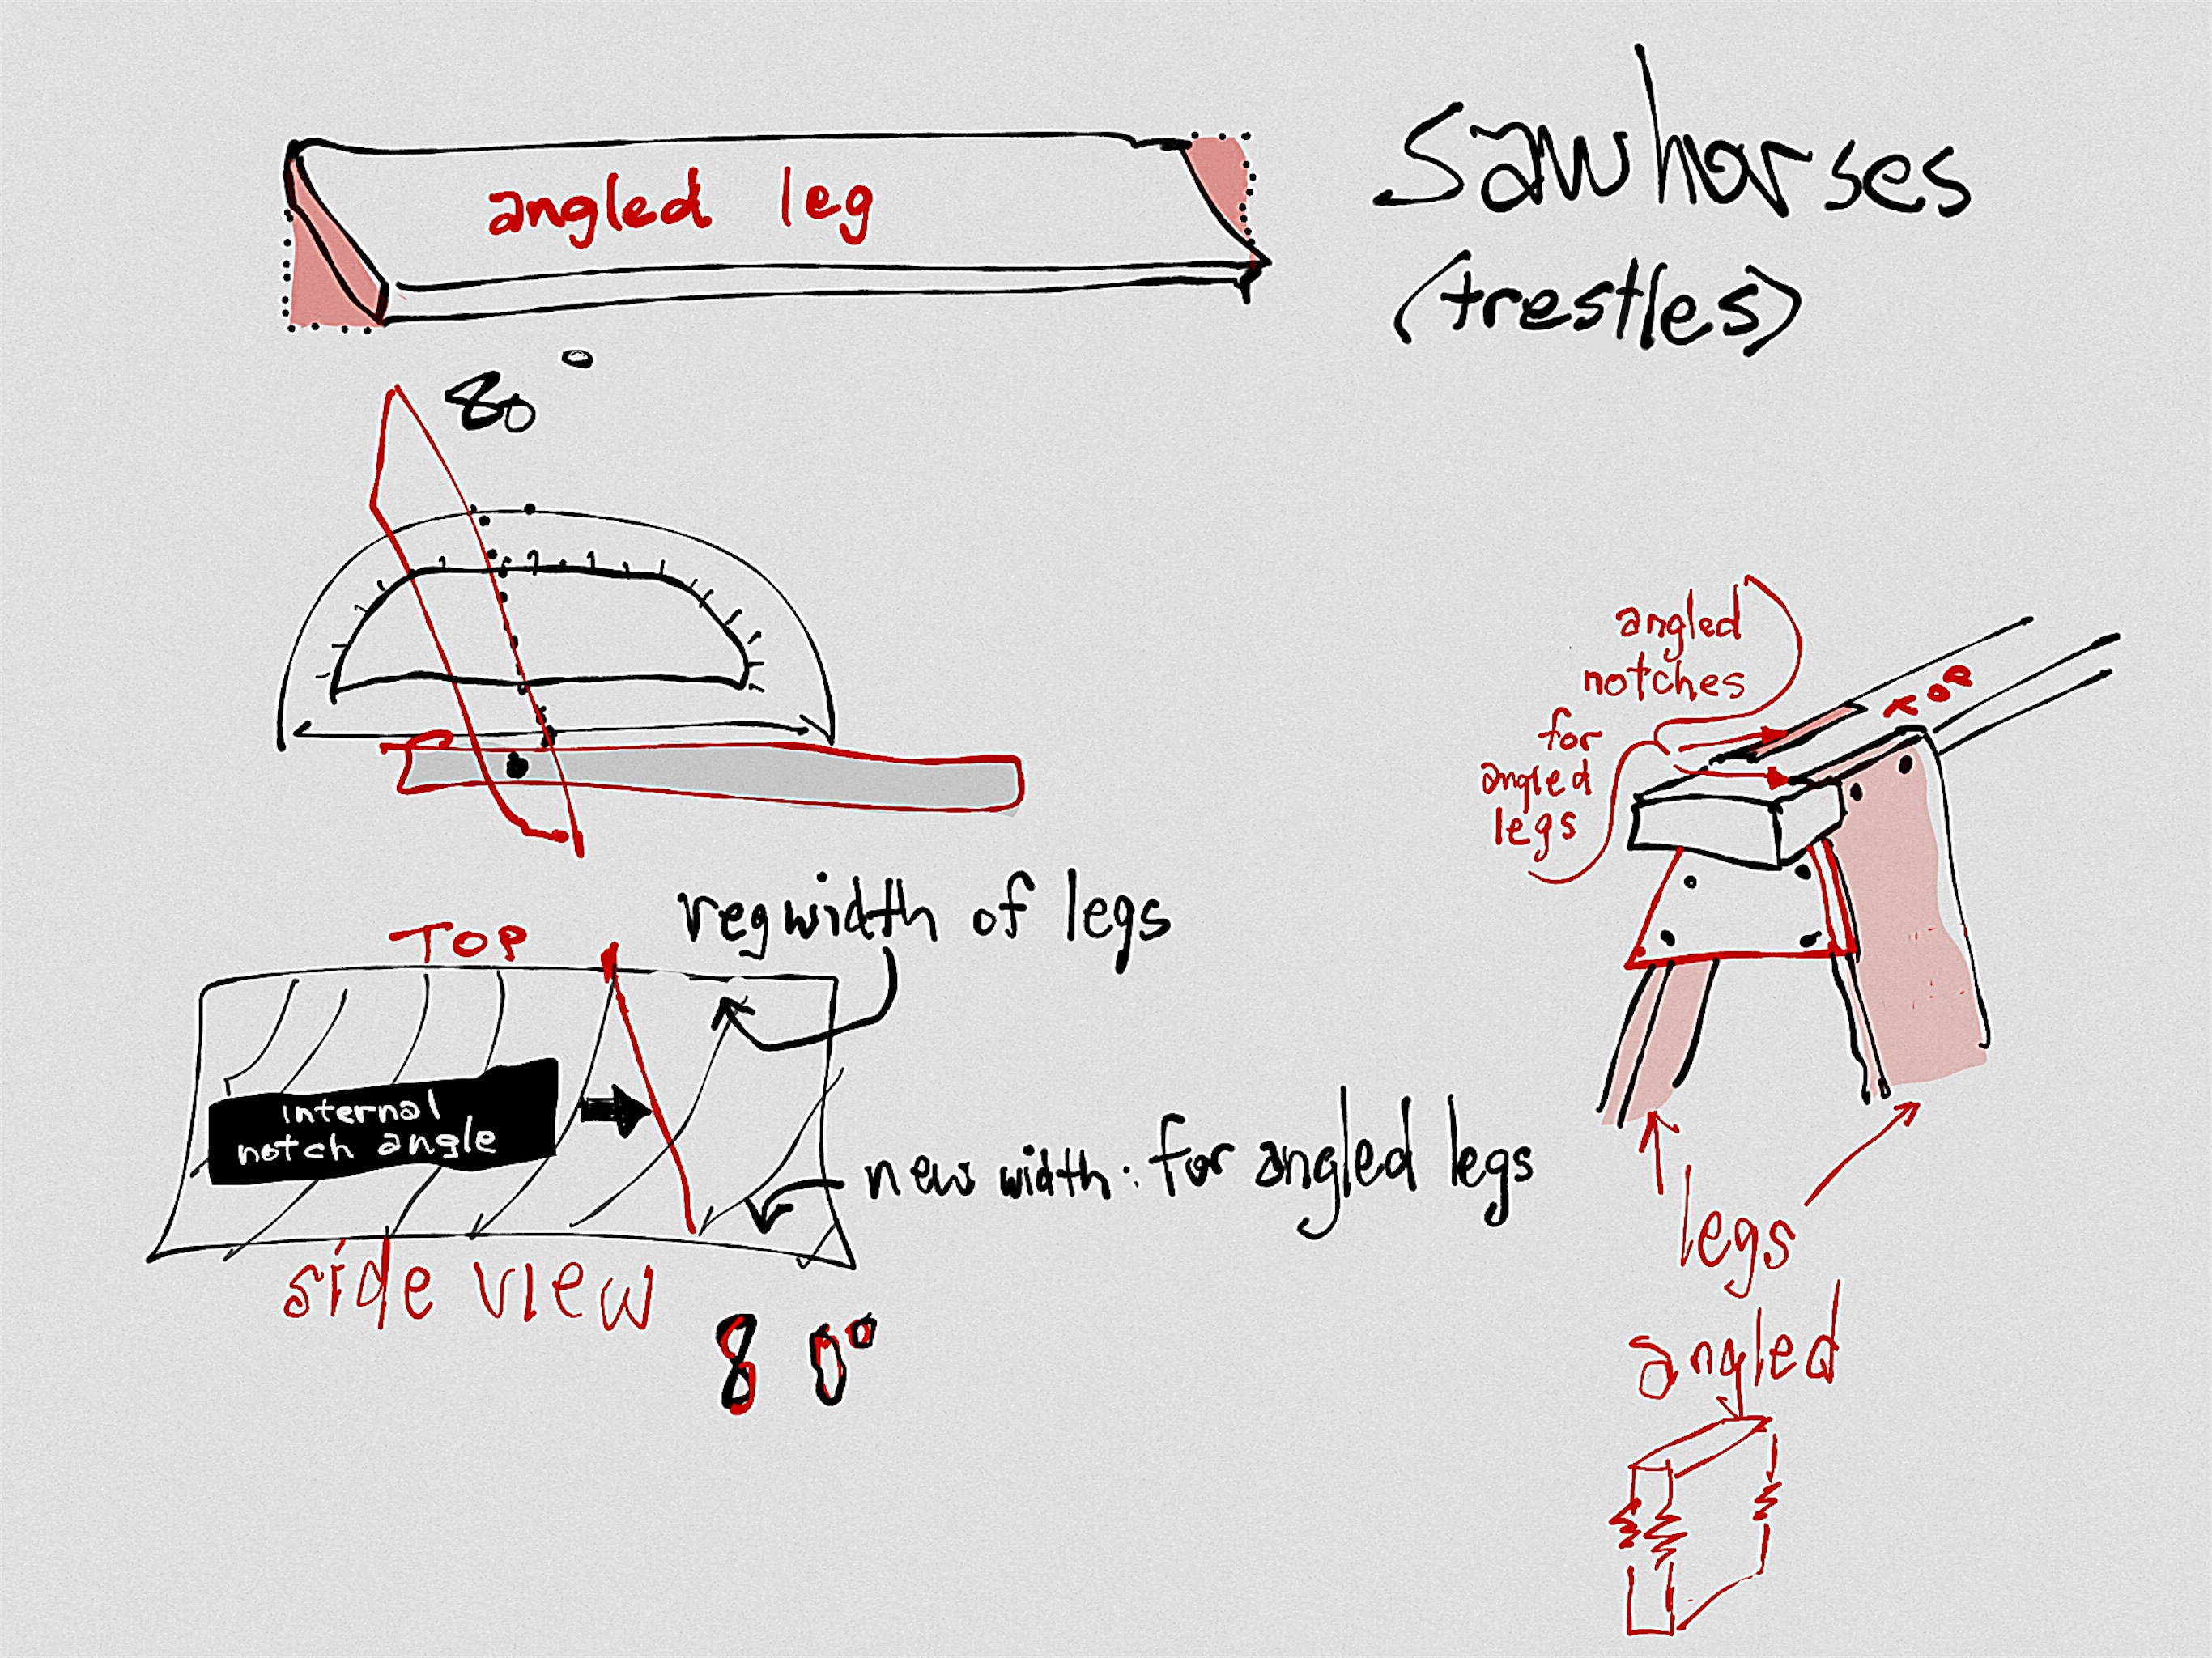 sawhorses
(trestles)
angled leg
80°
angled
notches
for
angled
legs
TOP
reg width of legs
TOP
internal
notch angle
new width: for angled legs
side view
80°
legs
angled